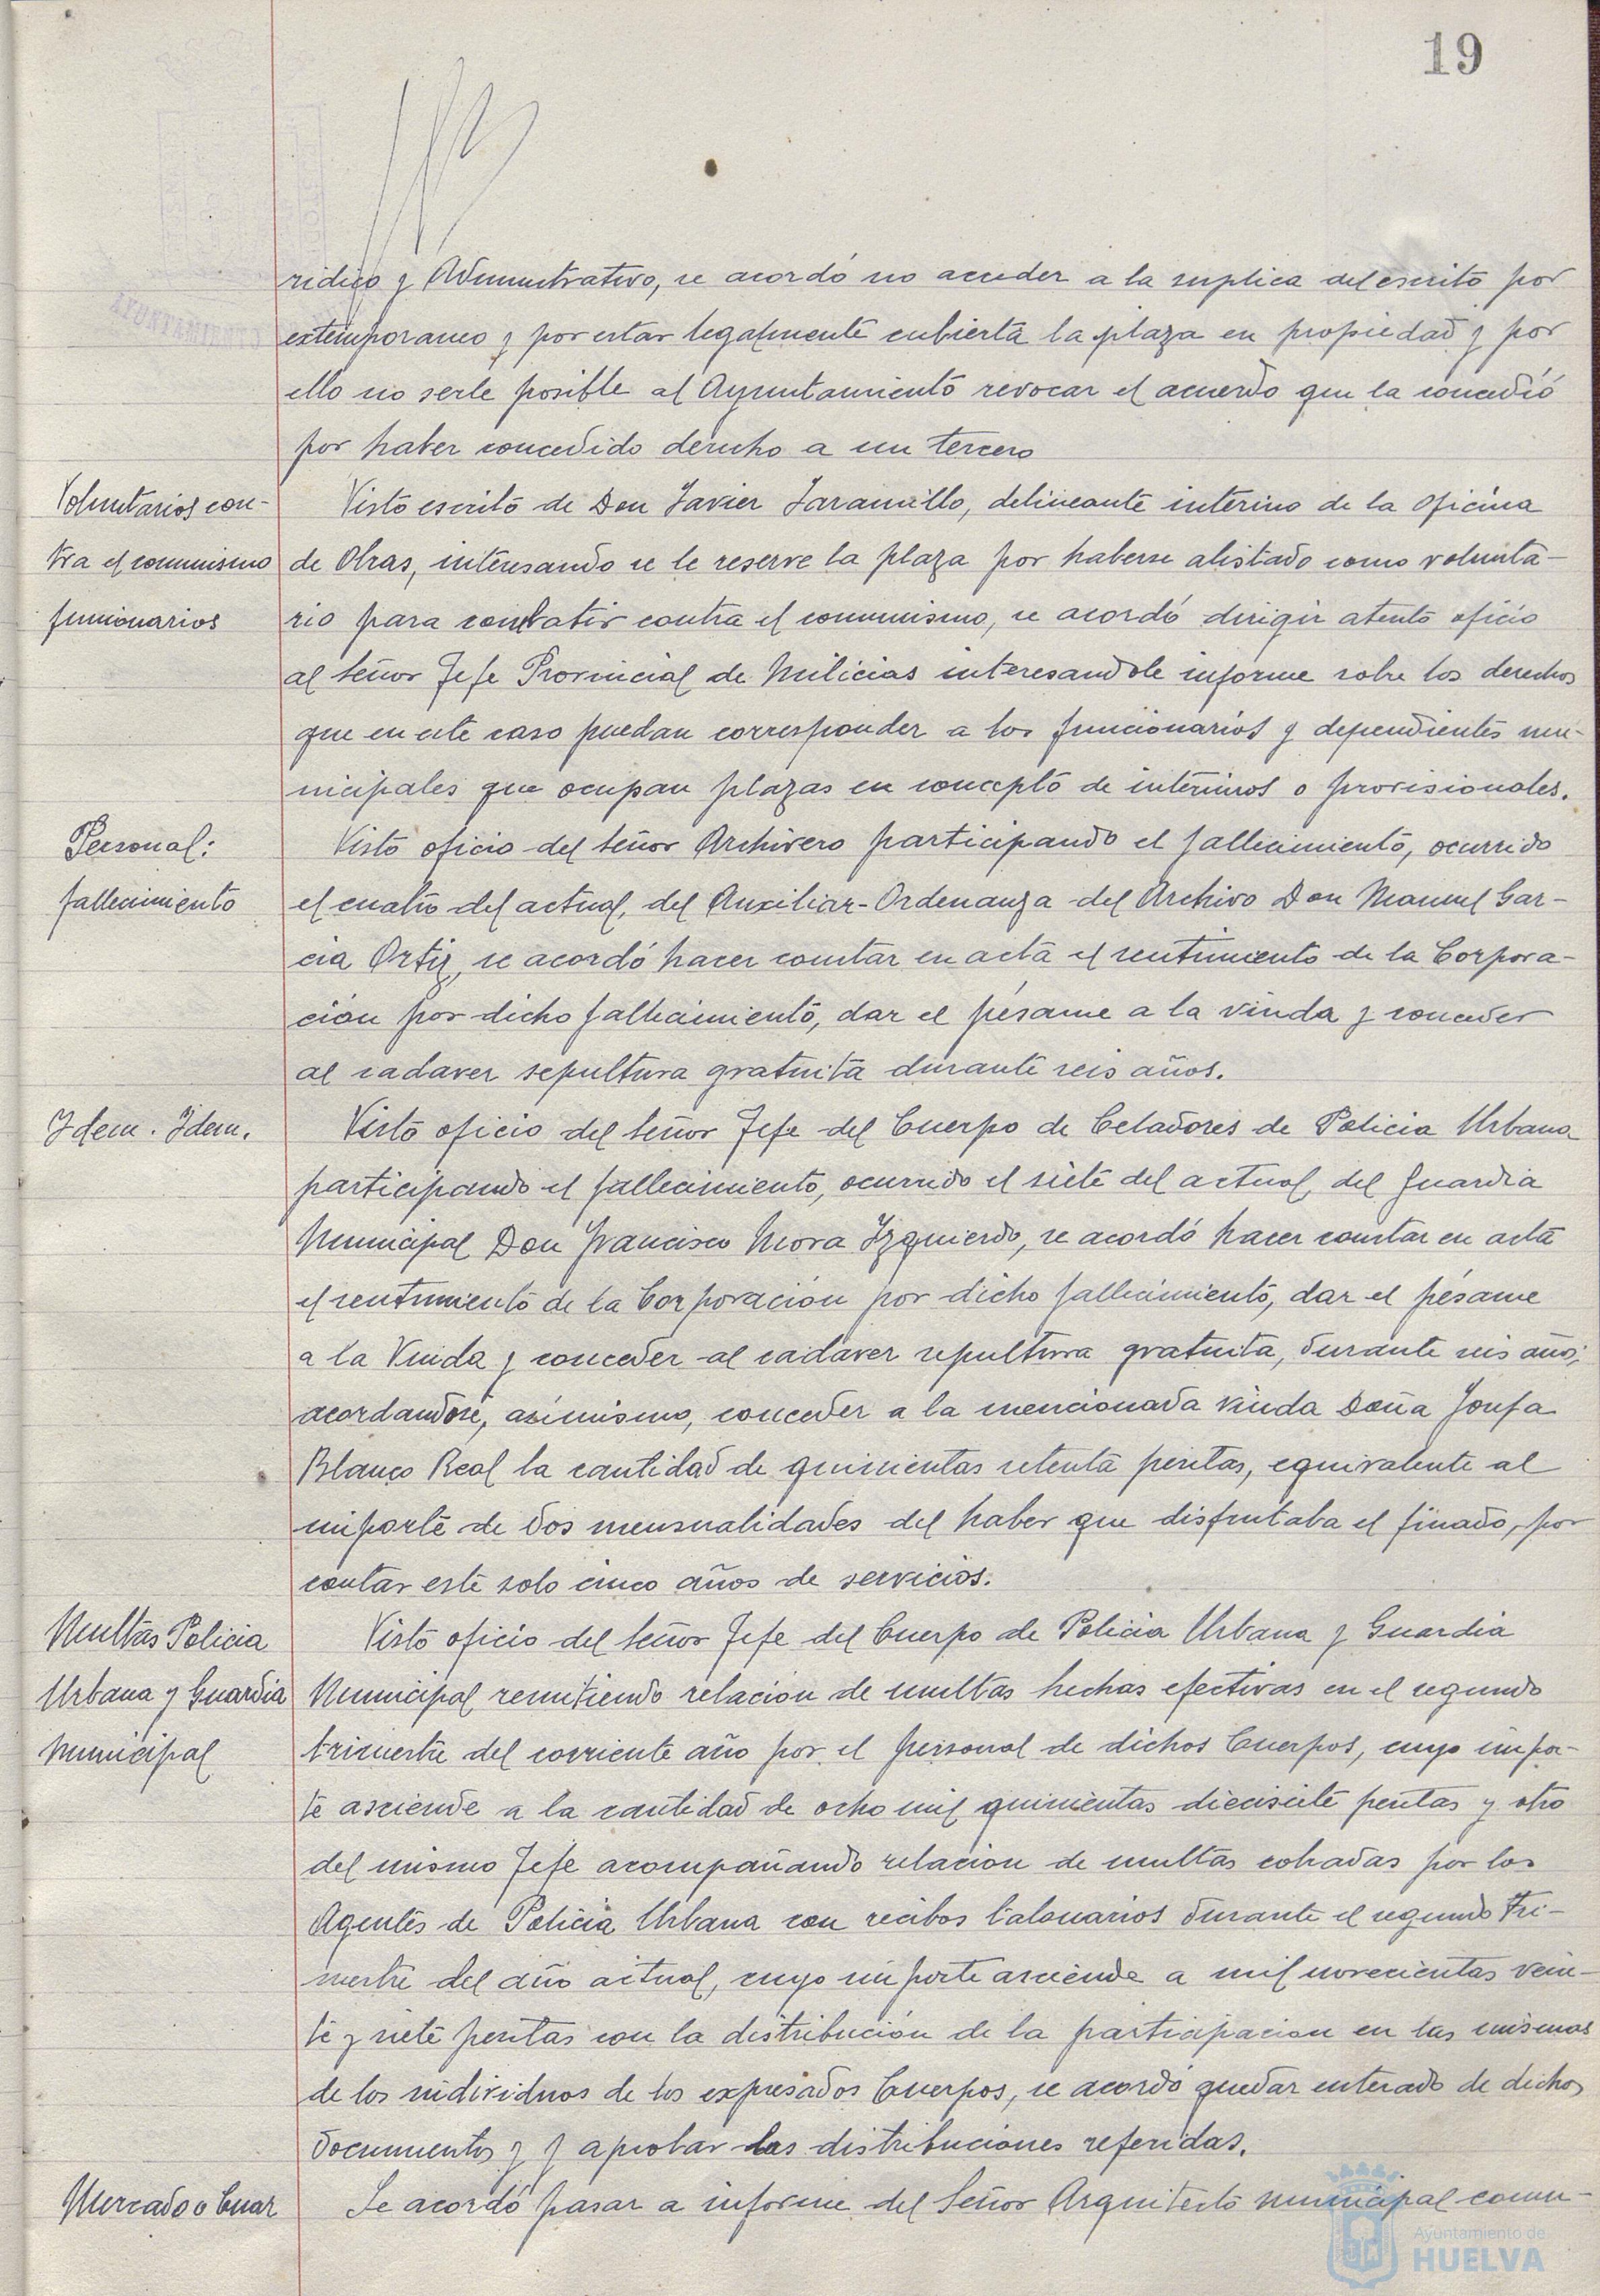 19
ridico y Administrativo, se acordó no acceder a la suplica del escrito por
extemporaneo y por estar legalmente cubierta la plaza en propiedad y por
ello no serle posible al Ayuntamiento revocar el acuerdo que la concedió
por haber concedido derecho a un tercero
Voluntarios con-
tra el comunismo
funcionarios
Visto escrito de Don Javier Jaramillo, delineante interino de la Oficina
de Obras, interesando se le reserve la plaza por haberse alistado como volunta-
rio para combatir contra el comunismo, se acordó dirigir atento oficio
al Señor Jefe Provincial de Milicias interesandole informe sobre los derechos
que en este caso puedan corresponder a los funcionarios y dependientes mu-
nicipales que ocupan plazas en concepto de interinos o provisionales.
Personal:
fallecimiento
Visto oficio del Señor Archivero participando el fallecimiento, ocurrido
el cuatro del actual, del Auxiliar-Ordenanza del Archivo Don Manuel Gar-
cia Ortiz, se acordó hacer constar en acta el sentimiento de la Corpora-
ción por dicho fallecimiento, dar el pésame a la viuda y conceder
al cadaver sepultura gratuita durante seis años.
Idem. Idem.
Visto oficio del Señor Jefe del Cuerpo de Celadores de Policia Urbana
participando el fallecimiento, ocurrido el siete del actual, del Guardia
Municipal Don Francisco Mora Izquierdo, se acordó hacer constar en acta
el sentimiento de la Corporación por dicho fallecimiento, dar el pésame
a la Viuda y conceder al cadaver sepultura gratuita, durante seis años;
acordandose, asimismo, conceder a la mencionada viuda Doña Josefa
Blanco Real la cantidad de quinientas setenta pesetas, equivalente al
importe de dos mensualidades del haber que disfrutaba el finado, por
contar este solo cinco años de servicios.
Multas Policia
Urbana y Guardia
Municipal
Visto oficio del Señor Jefe del Cuerpo de Policia Urbana y Guardia
Municipal remitiendo relación de multas hechas efectivas en el segundo
trimestre del corriente año por el personal de dichos Cuerpos, cuyo impor-
te asciende a la cantidad de ocho mil quinientas diecisiete pesetas y otro
del mismo Jefe acompañando relacion de multas cobradas por los
Agentes de Policia Urbana con recibos talonarios durante el segundo tri-
mestre del año actual, cuyo importe asciende a mil novecientas vein-
te y siete pesetas con la distribución de la participacion en las mismas
de los individuos de los expresados Cuerpos, se acordó quedar enterado de dichos
documentos y y aprobar las distribuciones referidas.
Mercado o Cuar
Se acordó pasar a informe del Señor Arquitecto municipal comu-
Ayuntamiento de
HUELVA